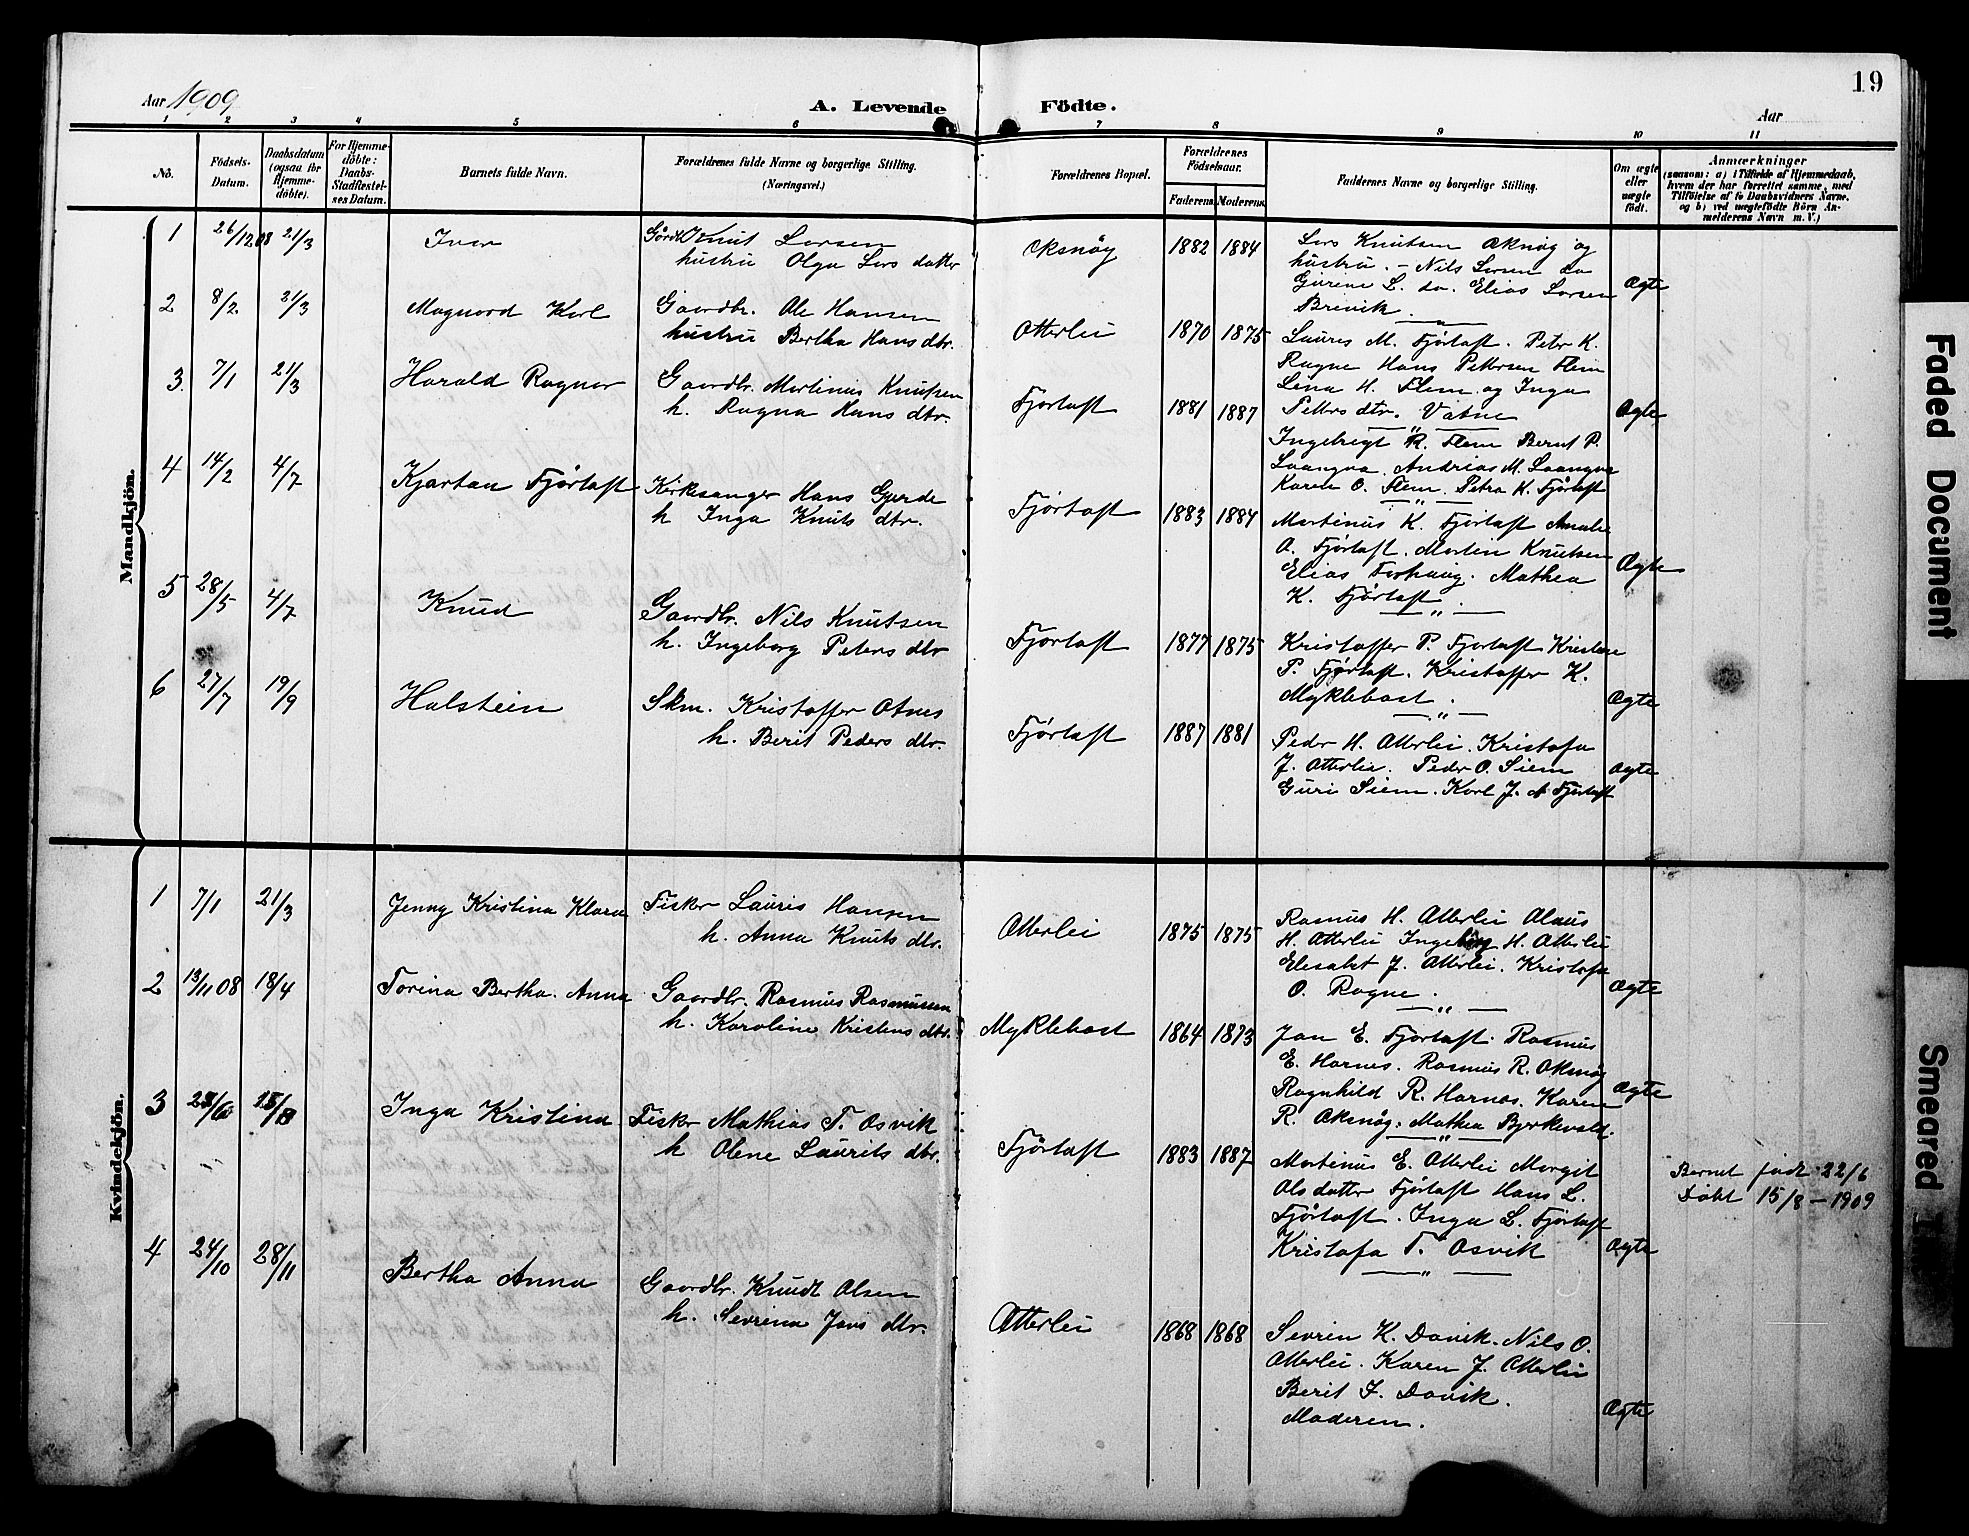 19
Aar 1909
A. Levende Födte.
Aar
1 2 3 4 5 6 7 8 9 10 11
No.
Födsels-Datum.
Daabsdatum (ogsaa for Hjemme-döbte).
For Hjemme-döbte: Daabs-Stadfæstel-ses Datum.
Barnets fulde Navn.
Forældrenes fulde Navne og borgerlige Stilling.
(Næringsvei.)
Forældrenes Bopæl.
Forældrenes Födselsaar.
Faderens. Moderens.
Faddernes Navne og borgerlige Stilling.
Om ægte eller uægte födt.
Anmærkninger
(saasom: a) i Tilfælde af Hjemmedaab,
hvem der har forrettet samme, med
Tilföielse af to Daabsvidners Navne.
og b) ved uægtefödte Börn An-
melderens Navn m. V.)
Mandkjön.
1 26/12 08 21/3 Ivar Gårdb Knut Larsen
hustru Olga Lars datter
Oksnøy 1882 1884
Lars Knutsen Oksnøy og
hustru. - Nils Larsen do
Gurine L. do. Elias Larsen
Brevik.
Ægte
2 8/2 21/3 Magnord Karl Gaardbr. Ole Hansen
hustru Bertha Hans dtr.
Otterlei 1870 1875
Laures M. Fjørtoft. Petr K.
Ragne Hans Pettersen Flem
Lena H. Flem og Inga
Petters dtr. Vatne
Ægte
3 7/1 21/3 Harald Ragnar Gaardbr. Martinus Knutsen
h. Ragna Hans dtr.
Fjørtoft 1881 1887
Ingebrigt R. Flem Bernt P.
Laangva. Andrias M. Laangva
Karen O. Flem. Petra K. Fjørtoft
4 14/2 4/7 Kjartan Fjørtoft Kirkesanger Hans Gjerde
h Inga Knuts dtr.
Fjørtoft 1883 1884
Martinus K. Fjørtoft Amalie
A. Fjørtoft. Martin Knutsen
Elias Mathea
K. Fjørtoft.
Ægte
5 28/5 4/7 Knud Gaardbr. Nils Knutsen
h. Ingeborg Peters dtr
Fjørtoft 1877 1875
Kristoffer P. Fjørtoft Kristine
P. Fjørtoft. Kristoffer K.
Myklebost.
Ægte
6 27/7 19/9 Halstein Skm. Kristoffer Otnes
h. Berit Peders dtr.
Fjørtoft 1887 1881
Peder H. Otterlei. Kristofa
J. Otterlei. Peder O. Siem
Guri Siem. Karl J. A Fjørtoft
Ægte
Kvindekjön.
1 7/1 21/3 Jenny Kristina Klara Fisker Lauris Hansen
h. Anna Knuts dtr.
Otterlei 1875 1875
Rasmus H. Otterlei Olaus
H. Otterlei Ingeborg H. Otterlei
Elesabet J. Otterlei. Kristofa
O. Rogne.
Ægte
2 13/11 08 18/4 Torina Bertha. Anna Gaardbr. Rasmus Rasmussen
h. Karoline Kristens dtr.
Myklebost 1864 1873
Jan E. Fjørtoft. Rasmus
E. Harnes. Rasmus R. Oksnøy
Ragnhild R. Harnes. Karen
R. Oksnøy. Mathea Byrkevold.
Ægte
3 Inga Kristina Fisker Mathias T. Osvik
h. Olene Laurits dtr.
Fjørtoft 1883 1887
Martinus E. Otterlei Margit
Ols datter Fjørtoft Hans L.
Fjørtoft. Inga L. Fjørtoft
Kristofa T. Osvik
Ægte
Barnet født 22/6
Døbt 15/8 - 1909
4 24/10 28/11 Bertha Anna Gaardbr. Knudt Olsen
h. Sevrina Jans dtr.
Otterlei 1868 1868
Sevrin K. Davik. Nils O.
Otterlei. Karen J. Otterlei
Berit I. Davik.
Moderen.
Ægte
Faded Document
Smeared